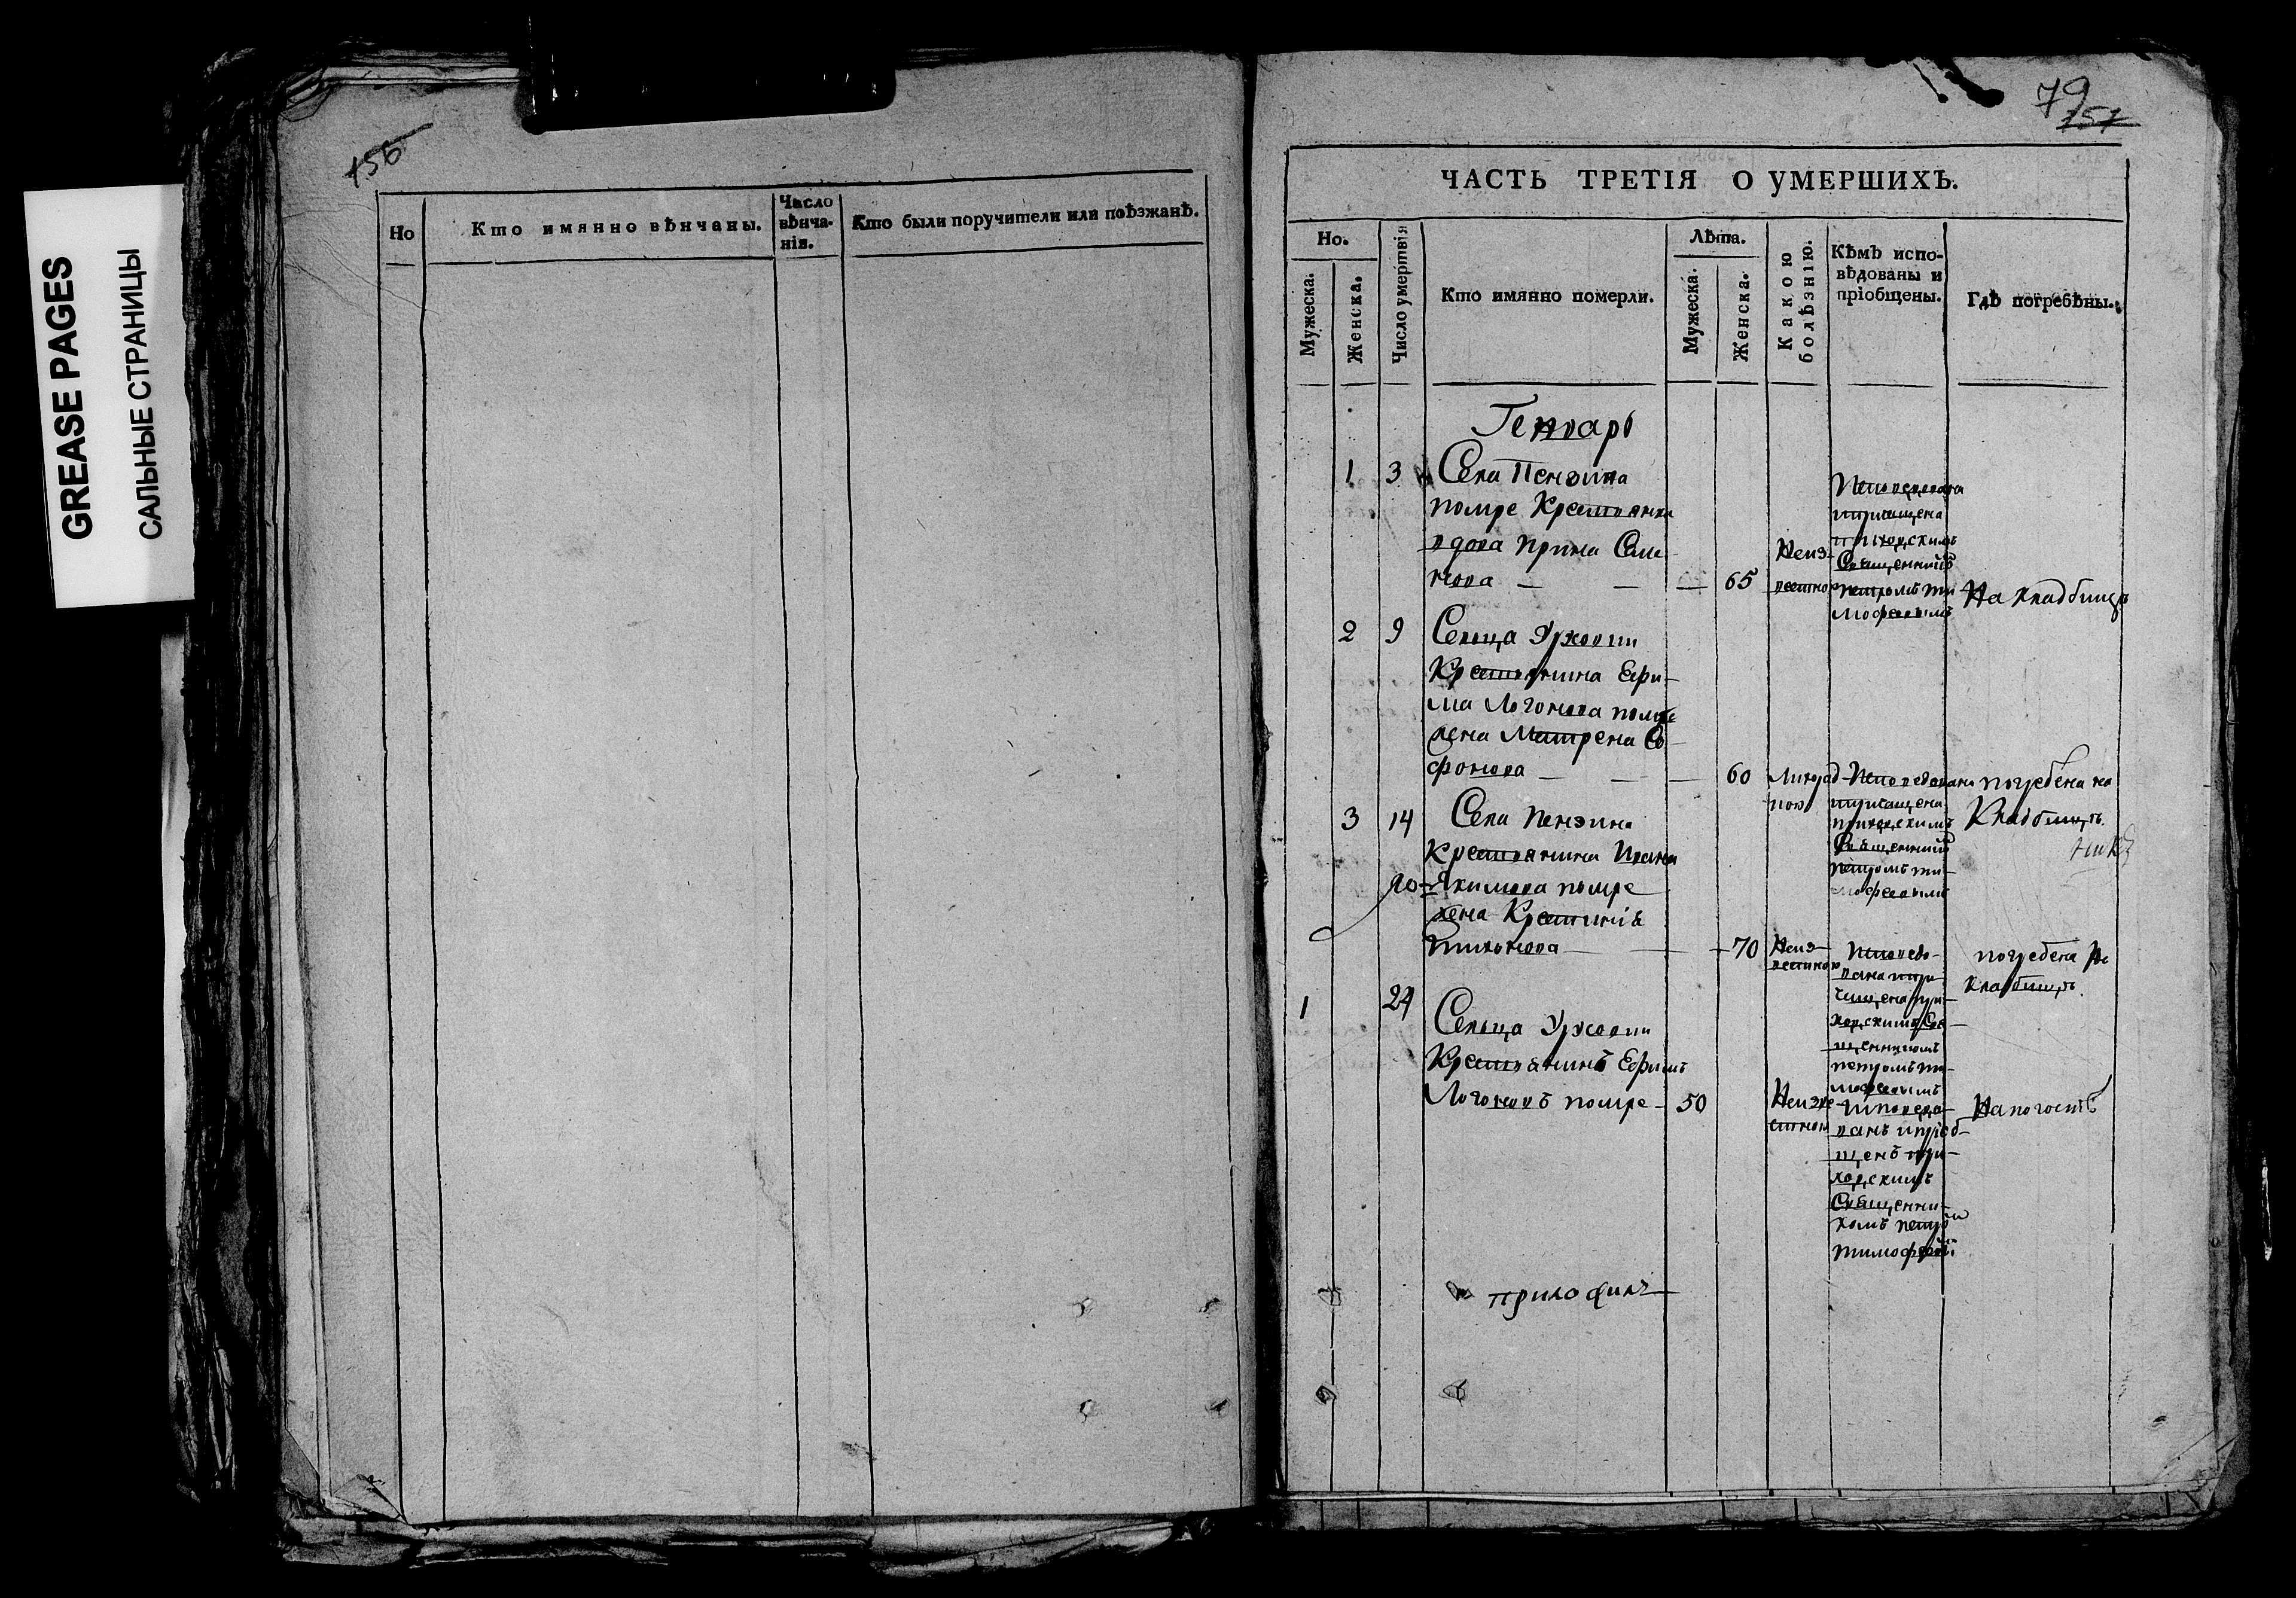 GREASE PAGES
САЛЬНЫЕ СТРАНИЦЫ
156
Но
Кто имянно вѣнчаны.
Число
вѣнча-
нія.
Кто были поручители или поѣзжанѣ.
79
157
ЧАСТЬ ТРЕТІЯ О УМЕРШИХЪ.
Но.
Мужеска.
Женска.
Число умертвія
Кто имянно померли.
Лѣта.
Мужеска.
Женска.
Какою
болѣзнію.
Кѣмъ испо-
вѣдованы и
пріобщены.
Гдѣ погребѣны.
Генварь
1 3 Села Пензина
помре Крестьянка
вдова Ирина Семе
нова — — — 65
Неиз-
вестною
Исповедована
причащена
приходскимъ
Священникомъ
петромъ ти
мофеевымъ
На кладбищѣ
2 9 Сельца
Крестьянина Ефи-
ма Логонова помре
жена Матрена
фонова — — — 60
Лихорад-
кою
Исповедована
причащена
приходскимъ
Священникомъ
петромъ ти-
мофеевымъ
погребена на
Кладбищѣ
3 14 Села Пензина
Крестьянина Ивана
Якимова помре
жена
тихонова — — 70
Неиз-
вестною
Исповедо-
вана при-
чащена при-
ходскимъ Свя-
щенникомъ
петромъ ти-
мофеевымъ
погребена на
кладбищѣ
1 24 Сельца
Крестьянинъ Ефимъ
Логоновъ помре — 50
Неизве-
стною
Исповедо-
ванъ и пріоб-
щенъ при-
ходскимъ
Священни-
комъ петромъ
тимофеевымъ
На погостѣ